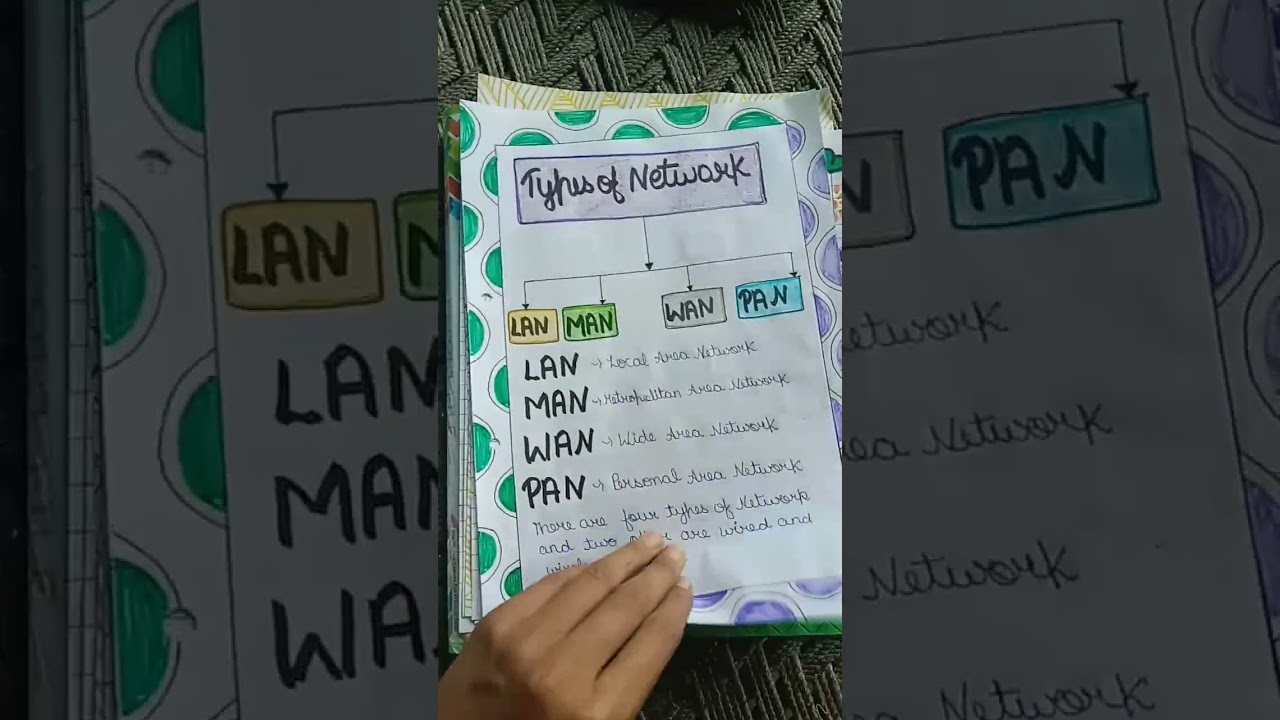 Types of Network
LAN MAN WAN PAN
LAN → Local Area Network
MAN → Metropolitan Area Network
WAN → Wide Area Network
PAN → Personal Area Network
There are four types of Network
and two are wired and